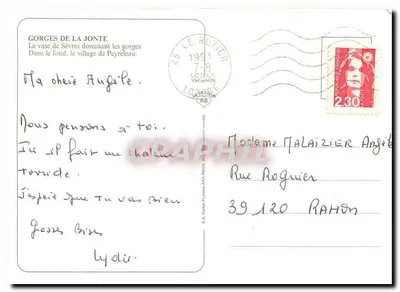 GORGES DE LA JONTE
Le vase de Sèvres dominant les gorges
Dans le fond, le village de Peyreleau.
LE ROZIER
2,30
Ma chère Angèle.
Nous pensons à toi.
Ici il fait une chaleur
torride.
J'espère que tu vas bien
Grosses Bises
Lydie
Madame MALAIZIER Angèle
Rue Roguier
39120 RAHON
CPAPHIL